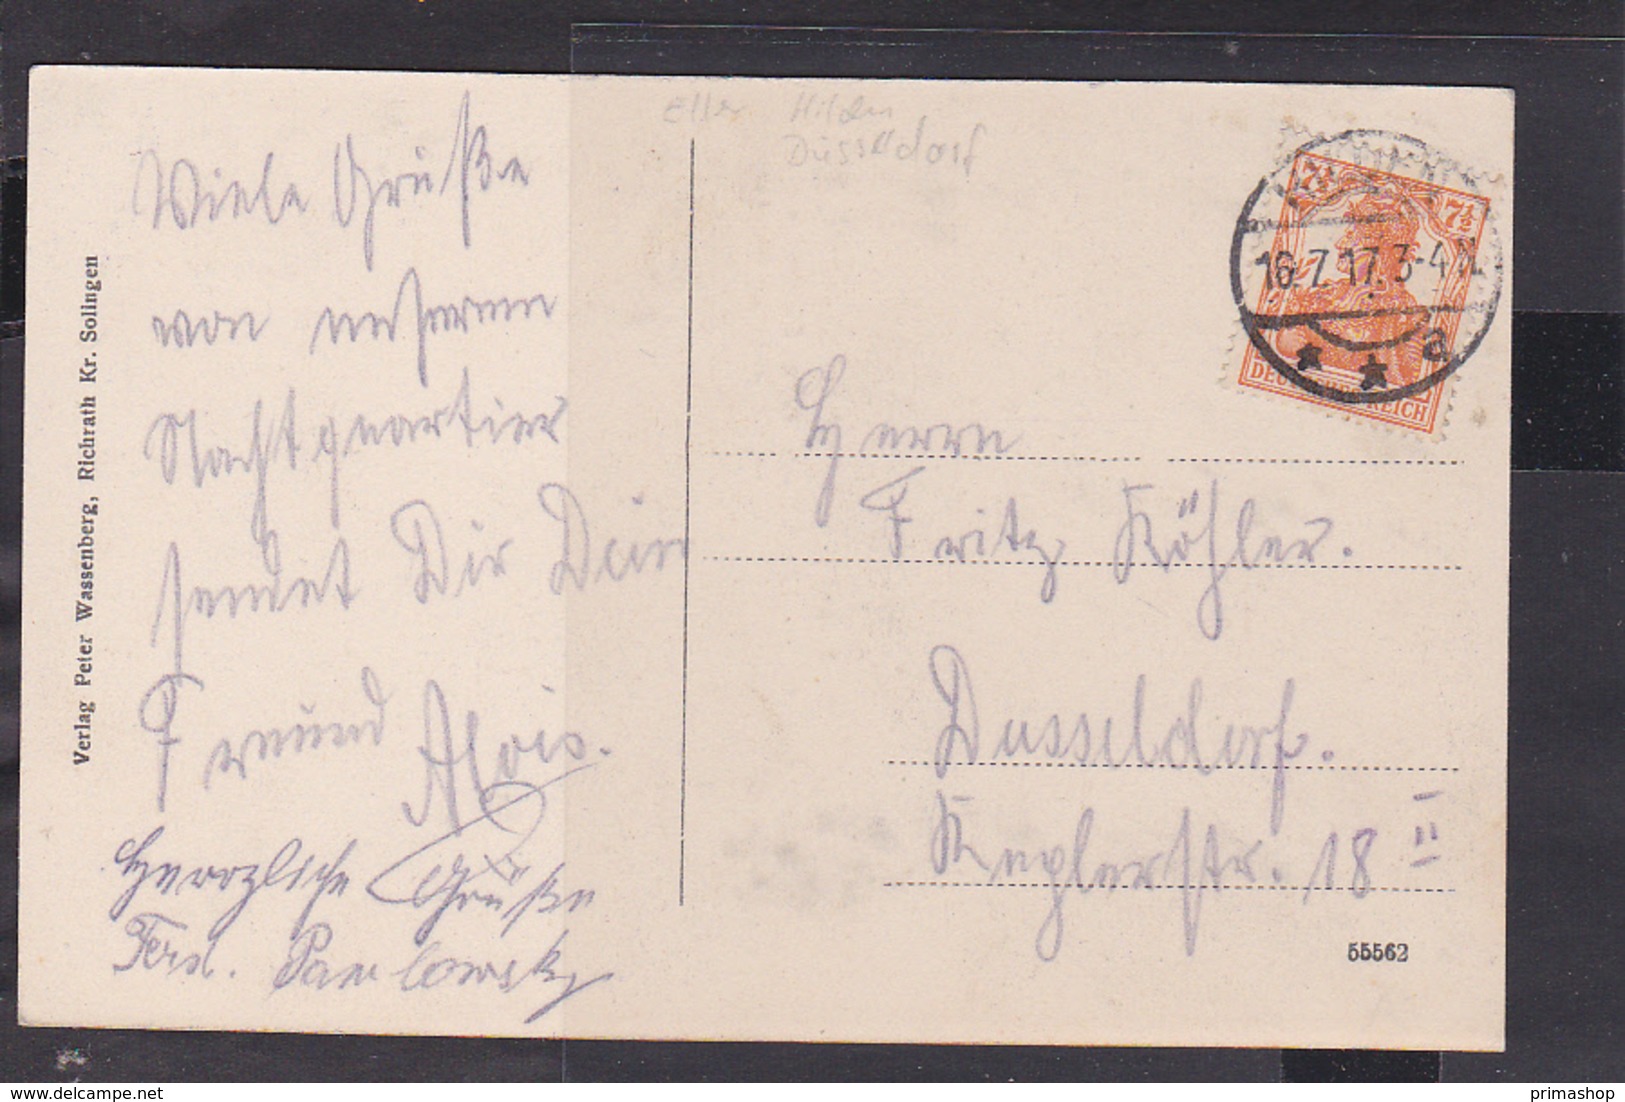 Eller Hilden
Düsseldorf
Viele Grüße
von unserem
Nachtquartier
sendet Dir Dein
Freund Alois.
Herzliche Grüße
Ferd. Pawlowsky
Verlag Peter Wassenberg, Richrath Kr. Solingen
7½ 7½
16.7.17. 3-4 N.
* * a
DEUTSCHES REICH
Herrn
Fritz Köhler.
Dusseldorf.
Keplerstr. 18 II
55562
delcampe.net
primashop